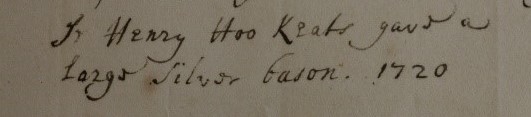 Sr Henry Hoo Keats gave a
Large Silver bason. 1720